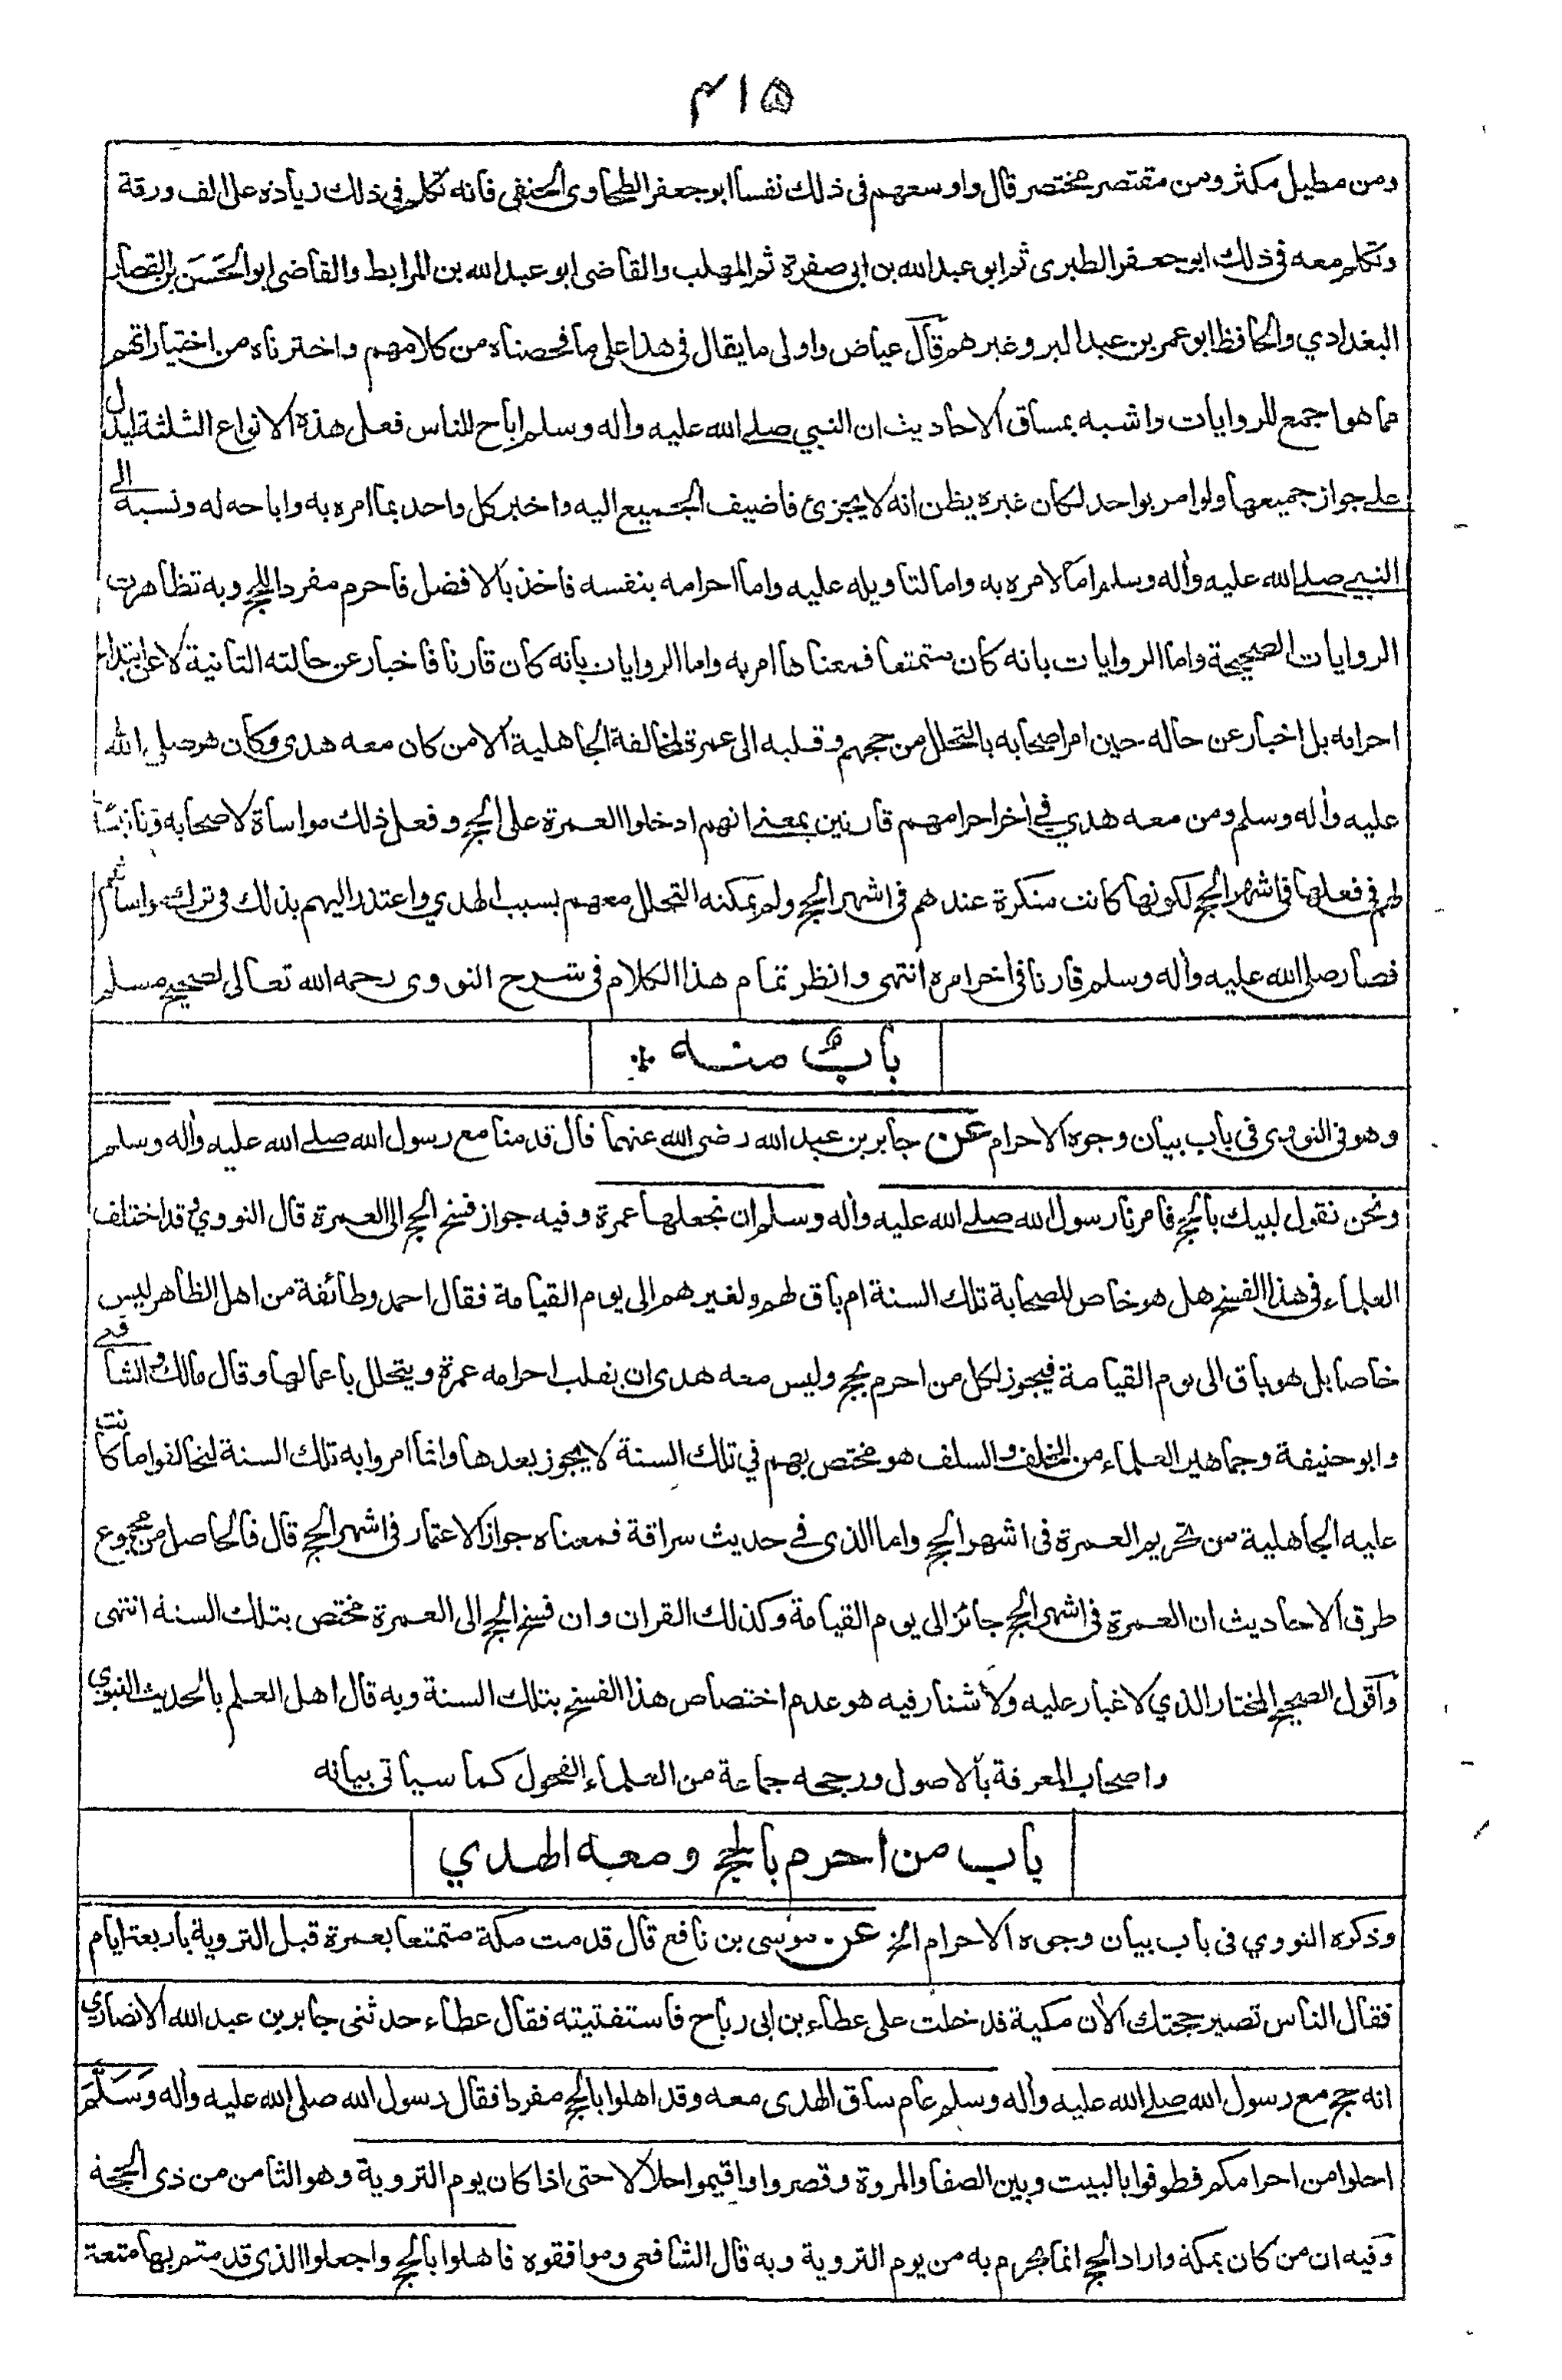 ٤١٥
ومن مطيل مكثر ومن مقتصر مختصر قال واوسعهم في ذلك نفسا ابو جعفر الطحاوي الحنفي فانه تكلم في ذلك زيادة على الف ورقة
وتكلم معه في ذلك ابو جعفر الطبري ثم ابو عبد الله بن ابي صفرة ثم المهلب والقاضي ابو عبد الله بن المرابط والقاضي ابو الحَسَن بن القصار
البغدادي والحافظ ابو عمر بن عبد البر وغيرهم قال عياض واولى ما يقال في هذا على ما فحصناه من كلامهم واخترناه من اختياراتهم
مما هو اجمع للروايات واشبه بمساق الاحاديث ان النبي صلى الله عليه وأله وسلم اباح للناس فعل هذه الانواع الثلثة ليدل
على جواز جميعها ولو امر بواحد لكان غيره يظن انه لا يجزئ فاضيف الجميع اليه واخبر كل واحد بما امره به واباحه له ونسبه الى
النبي صلى الله عليه وأله وسلم اما لامره به واما لتاويله عليه واما احرامه بنفسه فاخذ بالافضل فاحرم مفردا للحج وبه تظاهرت
الروايات الصحيحة واما الروايات بانه كان متمتعا فمعناها امر به واما الروايات بانه كان قارنا فاخبار عن حالته الثانية لا عن ابتداء
احرامه بل اخبار عن حاله حين امر اصحابه بالتحلل من حجهم وقلبه الى عمرة لمخالفة الجاهلية الا من كان معه هدى وكان هو صلى الله
عليه وأله وسلم ومن معه هدي في أخر احرامهم قارنين بمعنى انهم ادخلوا العمرة على الحج وفعل ذلك مواساة لاصحابه وتانيسا
لهم في فعلها في اشهر الحج لكونها كانت منكرة عندهم في اشهر الحج ولم يمكنه التحلل معهم بسبب الهدي واعتذر اليهم بذلك في ترك مواساتهم
فصار صلى الله عليه وأله وسلم قارنا في أخر امره انتهى وانظر تمام هذا الكلام في شرح النووى رحمه الله تعالى لصحيح مسلم
باب منه
وهو في النووي في باب بيان وجوه الاحرام عن جابر بن عبد الله رضي الله عنهما قال قدمنا مع رسول الله صلى الله عليه وأله وسلم
ونحن نقول لبيك بالحج فامرنا رسول الله صلى الله عليه وأله وسلم ان نجعلها عمرة وفيه جواز فسخ الحج الى العمرة قال النووي وقد اختلف
العلماء في هذا الفسخ هل هو خاص للصحابة تلك السنة ام باق لهم ولغيرهم الى يوم القيامة فقال احمد وطائفة من اهل الظاهر ليس
خاصا بل هو باق الى يوم القيامة فيجوز لكل من احرم بحج وليس معه هدى ان يقلب احرامه عمرة ويتحلل باعمالها وقال مالك والشافعي
وابو حنيفة وجماهير العلماء من الخلف والسلف هو مختص بهم في تلك السنة لا يجوز بعدها وانما امروا به تلك السنة ليخالفوا ما كانت
عليه الجاهلية من تحريم العمرة في اشهر الحج واما الذي في حديث سراقة فمعناه جواز الاعتمار في اشهر الحج قال فالحاصل من مجموع
طرق الاحاديث ان العمرة في اشهر الحج جائز الى يوم القيامة وكذلك القران وان فسخ الحج الى العمرة مختص بتلك السنة انتهى
وأقول الصحيح المختار الذي لا غبار عليه ولا شنار فيه هو عدم اختصاص هذا الفسخ بتلك السنة وبه قال اهل العلم بالحديث النبوي
واصحاب المعرفة بالاصول ورجحه جماعة من العلماء الفحول كما سياتي بيانه
باب من احرم بالحج ومعه الهدي
وذكره النووي في باب بيان وجوه الاحرام الخ عن موسى بن نافع قال قدمت مكة متمتعا بعمرة قبل التروية باربعة ايام
فقال الناس تصير حجتك الأن مكية فدخلت على عطاء بن ابي رباح فاستفتيته فقال عطاء حدثني جابر بن عبد الله الانصاري
انه حج مع رسول الله صلى الله عليه وأله وسلم عام ساق الهدى معه وقد اهلوا بالحج مفردا فقال رسول الله صلى الله عليه وأله وَسَلَّمَ
احلوا من احرامكم فطوفوا بالبيت وبين الصفا والمروة وقصروا واقيموا حلالا حتى اذا كان يوم التروية وهو الثامن من ذي الحجة
وفيه ان من كان بمكة واراد الحج انما يحرم به من يوم التروية وبه قال الشافعي وموافقوه فاهلوا بالحج واجعلوا الذي قدمتم بها متعة